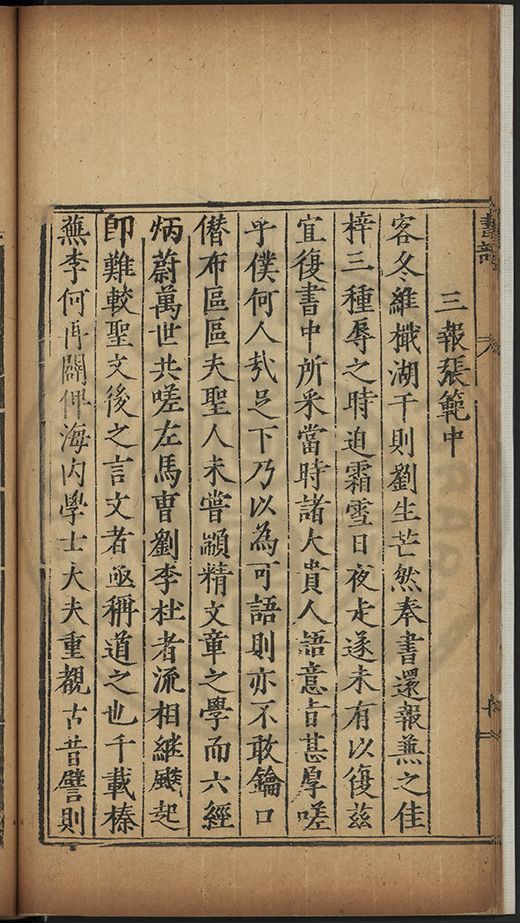 三報張範中
客冬維檥湖干則劉生芒然奉書還報蕪之佳
梓三種辱之時迫霜雪日夜走遂未有以復茲
宜復書中所釆當時諸大貴人語意旨甚厚嗟
乎僕何人哉足下乃以為可語則亦不敢鑰口
僣布區區夫聖人未嘗顓精文章之學而六經
炳蔚萬世共嗟左馬曹劉李杜者流相継飈起
卽難較聖文後之言文者亟稱道之也千載榛
蕪李何再闢俾海內學士大夫重觀古昔譬則